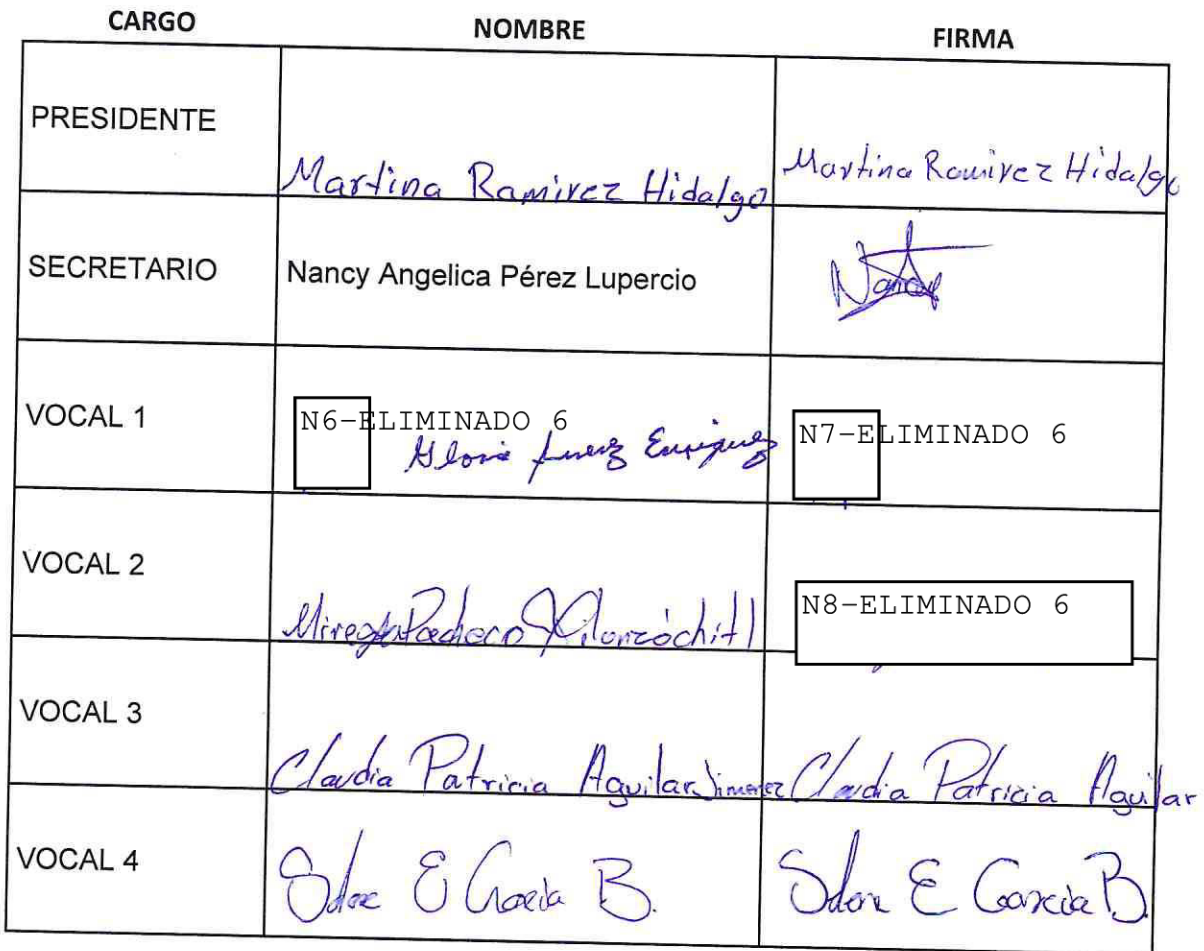 CARGO NOMBRE FIRMA
PRESIDENTE Martina Ramirez Hidalgo Martina Ramirez Hidalgo
SECRETARIO Nancy Angelica Pérez Lupercio Nancy
VOCAL 1 N6-ELIMINADO 6 N7-ELIMINADO 6
Enriquez
VOCAL 2 Pacheco N8-ELIMINADO 6
VOCAL 3 Claudia Patricia Aguilar Jimenez Claudia Patricia Aguilar
VOCAL 4 E Garcia B. E Garcia B.